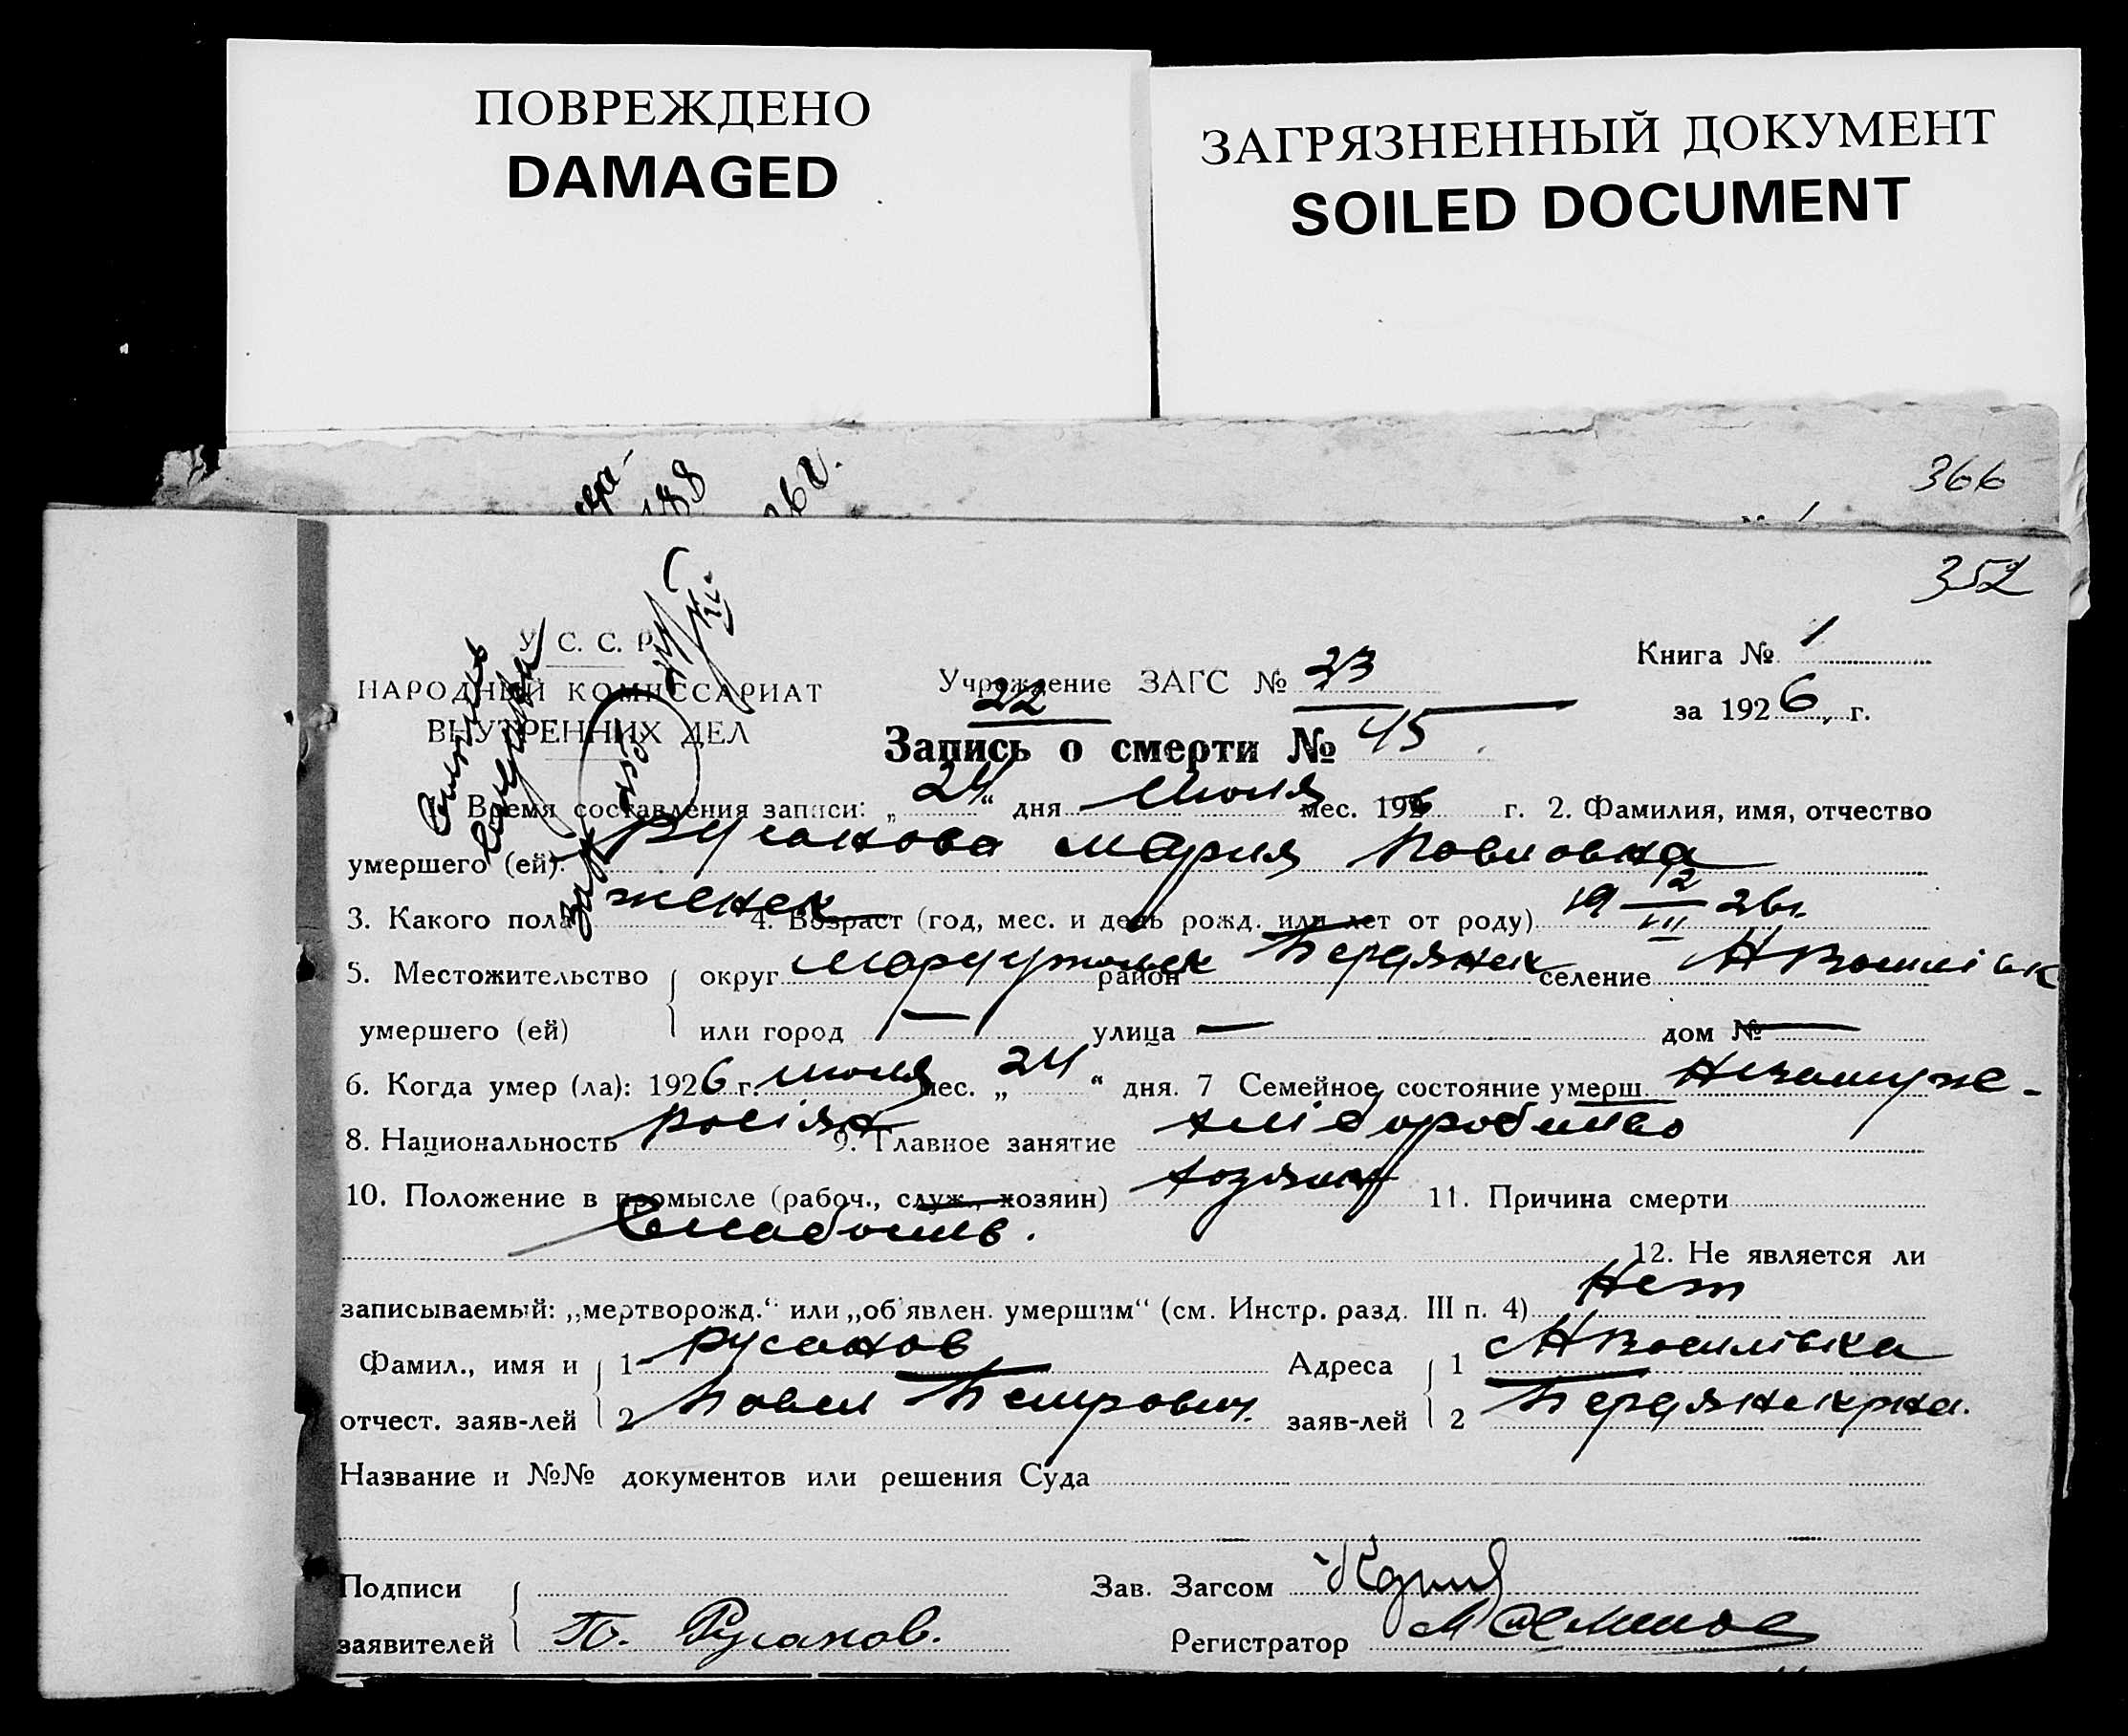 ПОВРЕЖДЕНО
DAMAGED
ЗАГРЯЗНЕННЫЙ ДОКУМЕНТ
SOILED DOCUMENT
188
366
352
У. С. С. Р.
НАРОДНЫЙ КОМИССАРИАТ
ВНУТРЕННИХ ДЕЛ
Учреждение ЗАГС № 23
22
Книга № 1
за 1926 г.
Запись о смерти № 45
1. Время составления записи: „24“ дня Июля мес. 1926 г. 2. Фамилия, имя, отчество
умершего (ей): Русанова Мария Павловна
3. Какого пола женск 4. Возраст (год, мес. и день рожд. или лет от роду) 19 12/VII 26 г.
5. Местожительство округ район Бердянск селение
умершего (ей) или город — улица — дом № —
6. Когда умер (ла): 1926 г. июля мес. „24“ дня. 7 Семейное состояние умерш. Незамуже-
8. Национальность 9. Главное занятие хліборобство
10. Положение в промысле (рабоч., служ., хозяин) хозяин 11. Причина смерти
Слабость.
12. Не является ли
записываемый: „мертворожд.“ или „об'явлен. умершим“ (см. Инстр. разд. III п. 4) Нет
Фамил., имя и 1 Русанов Адреса 1 Н Василівка
отчест. заяв-лей 2 Павел Петрович заяв-лей 2 Бердянск рна.
Название и №№ документов или решения Суда
Подписи Зав. Загсом
заявителей П. Русанов. Регистратор